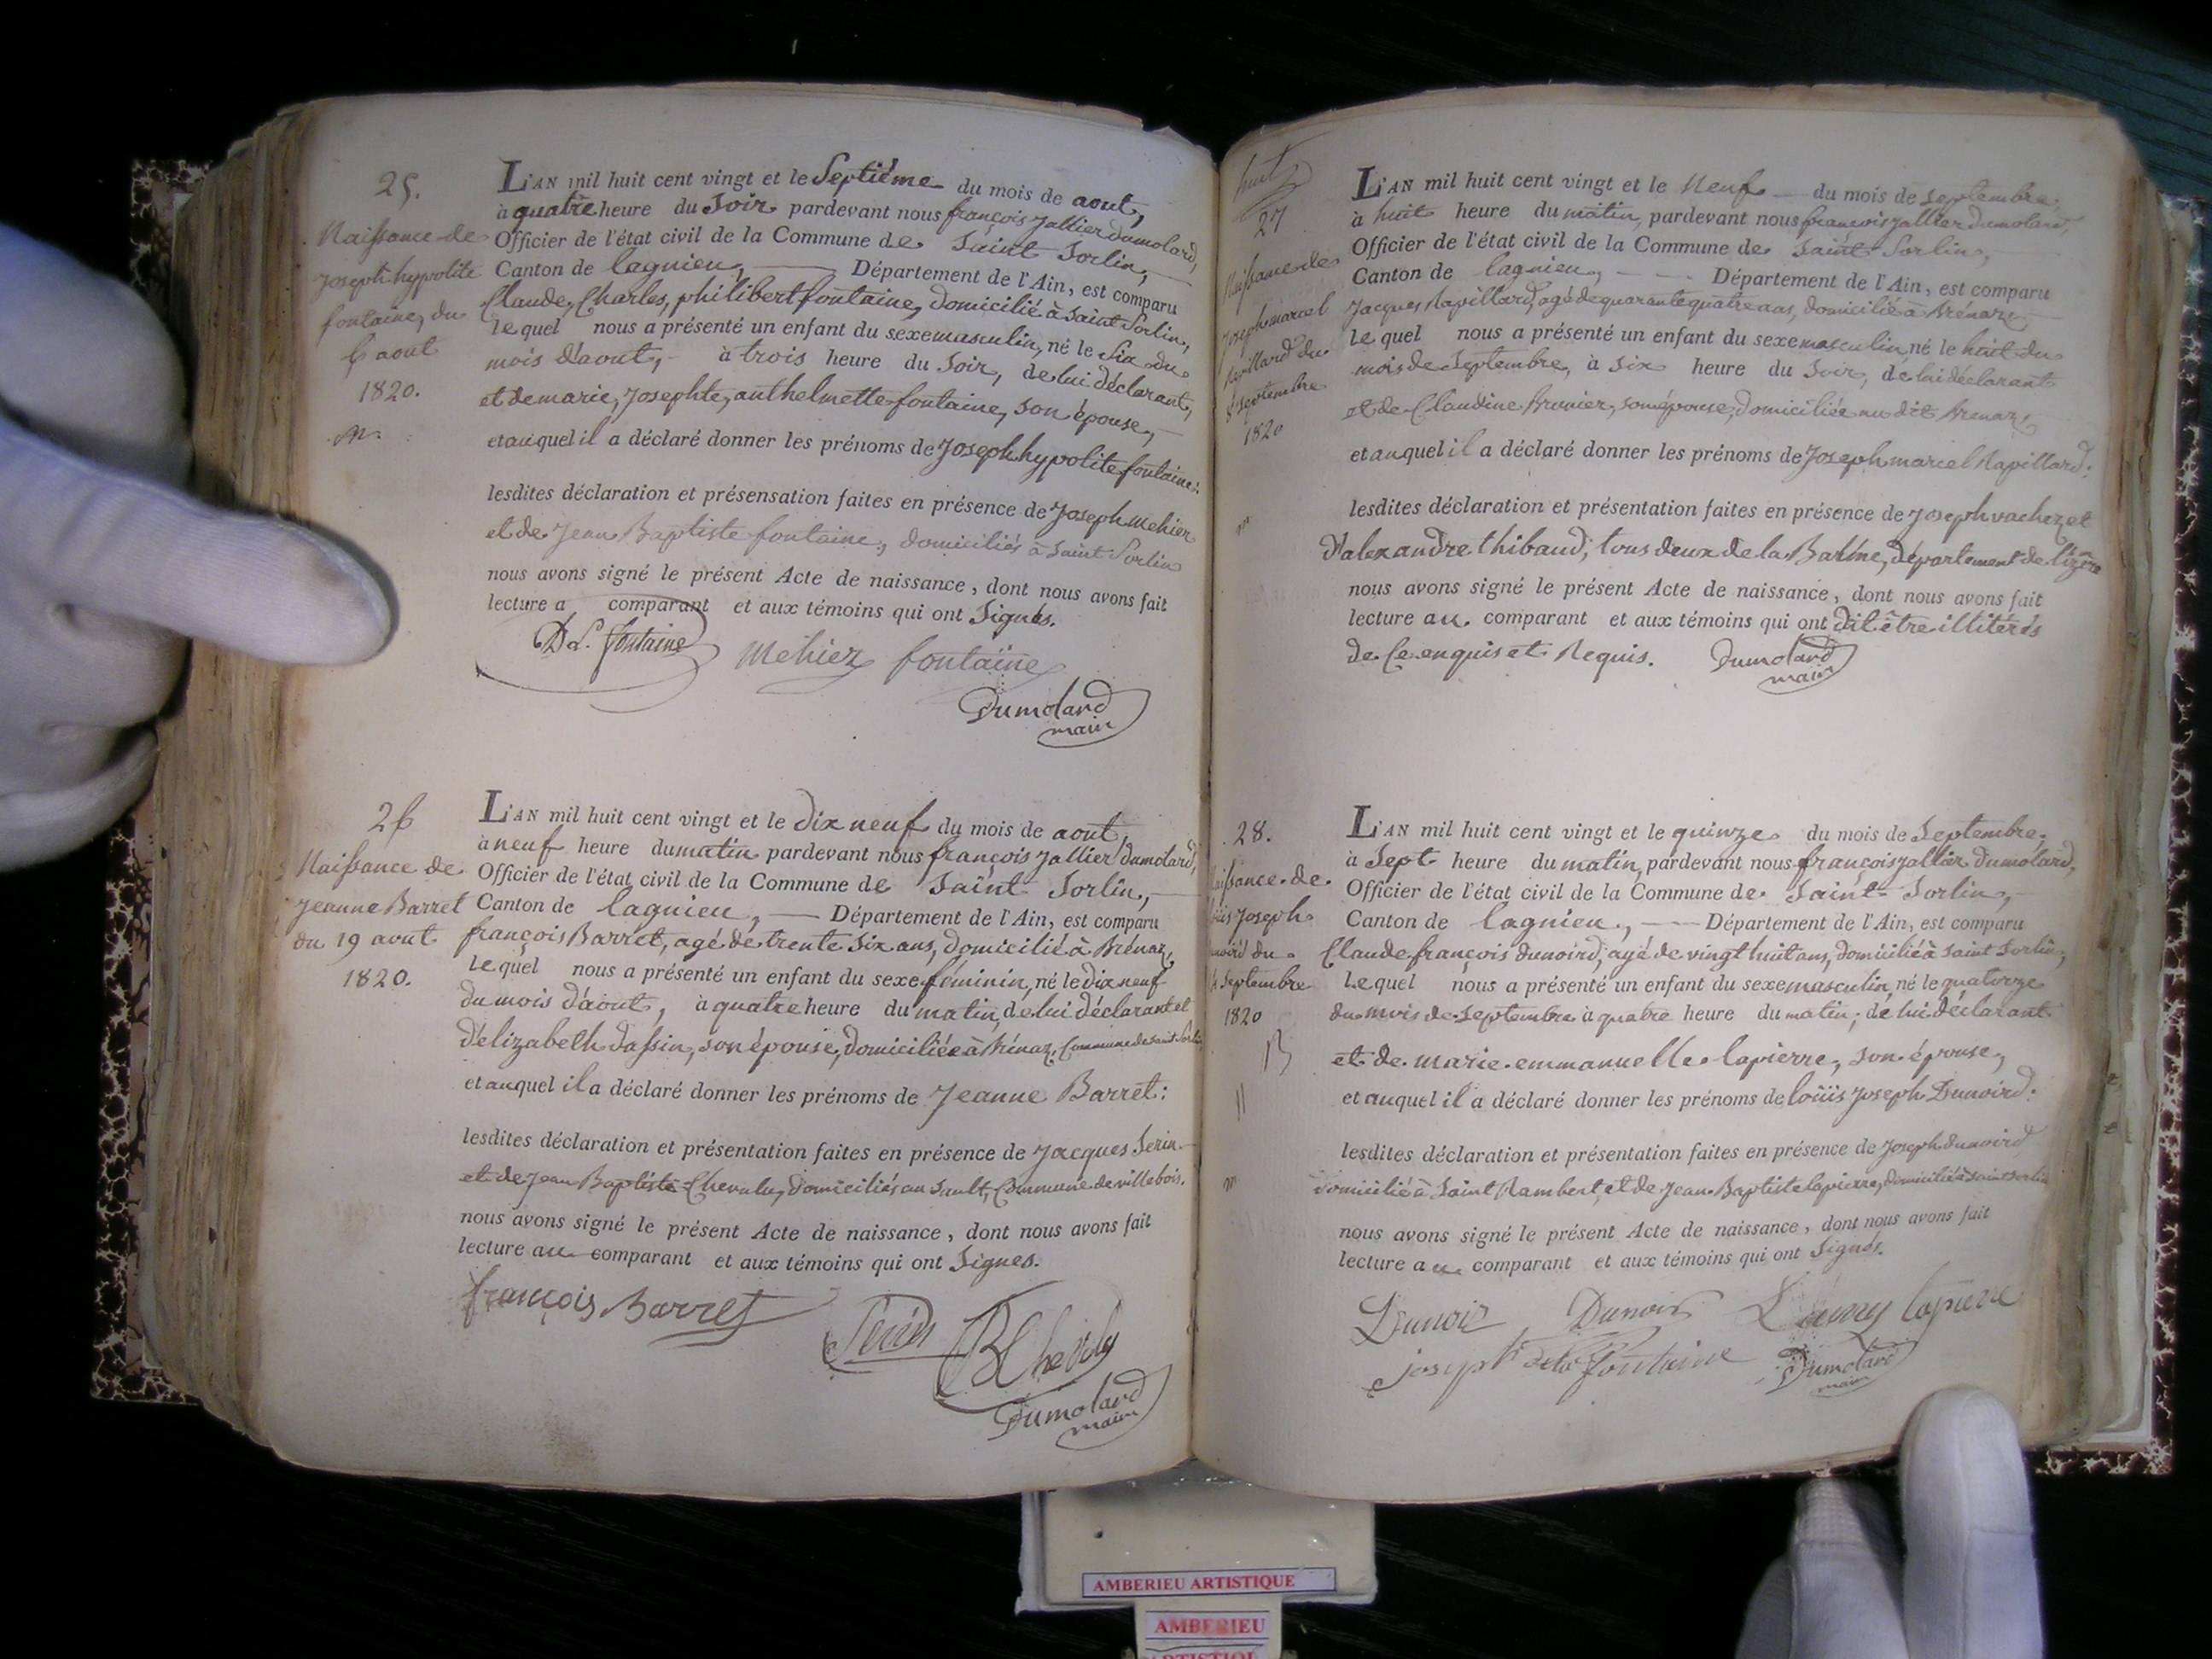 25.
Naissance de
Joseph hypolite
fontaine, du
6 aout
1820.
m.
L'AN mil huit cent vingt et le Septième du mois de aout,
à quatre heure du Soir pardevant nous françois jallier dumolard,
Officier de l'état civil de la Commune de Saint Sorlin,
Canton de lagnieu, Département de l'Ain, est comparu
Claude, Charles, philibert fontaine, domicilié à Saint Sorlin,
lequel nous a présenté un enfant du sexe masculin, né le Six du
mois d'aout, à trois heure du Soir, de lui déclarant,
et de marie, Josephte, anthelmette fontaine, son épouse,
et auquel il a déclaré donner les prénoms de Joseph hypolite fontaine:
lesdites déclaration et présensation faites en présence de Joseph Mehier
et de Jean Baptiste fontaine, domiciliés à Saint Sorlin
nous avons signé le présent Acte de naissance, dont nous avons fait
lecture a comparant et aux témoins qui ont Signés.
fontaine Mehier fontaine
Dumolard
maire
26
Naissance de
Jeanne Barret
du 19 aout
1820.
L'AN mil huit cent vingt et le dix neuf du mois de aout,
à neuf heure du matin pardevant nous françois jallier dumolard,
Officier de l'état civil de la Commune de Saint Sorlin,
Canton de lagnieu, Département de l'Ain, est comparu
françois Barret, agé de trente Six ans, domicilié à Brénaz,
lequel nous a présenté un enfant du sexe féminin, né le dix neuf
du mois d'aout, à quatre heure du matin, de lui déclarant et
d'elizabeth dassin, son épouse, domiciliée à Brénaz, Commune de saint Sorlin
et auquel il a déclaré donner les prénoms de Jeanne Barret:
lesdites déclaration et présentation faites en présence de Jacques Serin
et de Jean Baptiste Chevaly, domiciliés au Sault, Commune de villebois.
nous avons signé le présent Acte de naissance, dont nous avons fait
lecture au comparant et aux témoins qui ont Signes.
françois Barret
Serin
Dumolard
maire
huit
27
Naissance de
Joseph marcel
Rapillard du
8 septembre
1820
m
L'AN mil huit cent vingt et le Neuf du mois de septembre,
à huit heure du matin, pardevant nous françois jallier dumolard,
Officier de l'état civil de la Commune de Saint Sorlin,
Canton de lagnieu, Département de l'Ain, est comparu
Jacques Rapillard, agé de quarante quatre ans, domicilié à Brénaz,
lequel nous a présenté un enfant du sexe masculin, né le huit du
mois de Septembre, à six heure du Soir, de lui déclarant
et de Claudine Brunier, son épouse, domiciliée au dit Brénaz,
et auquel il a déclaré donner les prénoms de Joseph marcel Rapillard:
lesdites déclaration et présentation faites en présence de Joseph vachez et
d'alexandre thibaud, tous deux de la Balme, département de l'izère
nous avons signé le présent Acte de naissance, dont nous avons fait
lecture au comparant et aux témoins qui ont dit être illitérés
de Ce enquis et Requis. Dumolard
maire
28.
Naissance de
Louis Joseph
Dunoird du
14 Septembre
1820
m
L'AN mil huit cent vingt et le quinze du mois de Septembre,
à Sept heure du matin, pardevant nous françois jallier dumolard,
Officier de l'état civil de la Commune de Saint Sorlin,
Canton de lagnieu, Département de l'Ain, est comparu
Claude françois dunoird, agé de vingt huit ans, domicilié à Saint Sorlin,
Lequel nous a présenté un enfant du sexe masculin, né le quatorze
du mois de Septembre à quatre heure du matin, de lui déclarant
et de marie emmanuelle lapierre, son épouse,
et auquel il a déclaré donner les prénoms de loüis Joseph Dunoird:
lesdites déclaration et présentation faites en présence de Joseph dunoird
domicilié à Saint Rambert, et de Jean Baptiste lapierre, domicilié à Saint Sorlin
nous avons signé le présent Acte de naissance, dont nous avons fait
lecture au comparant et aux témoins qui ont Signés.
Dunoir Dunoir lapierre
joseph fontaine Dumolard
maire
AMBERIEU ARTISTIQUE
AMBERIEU
ARTISTIQUE